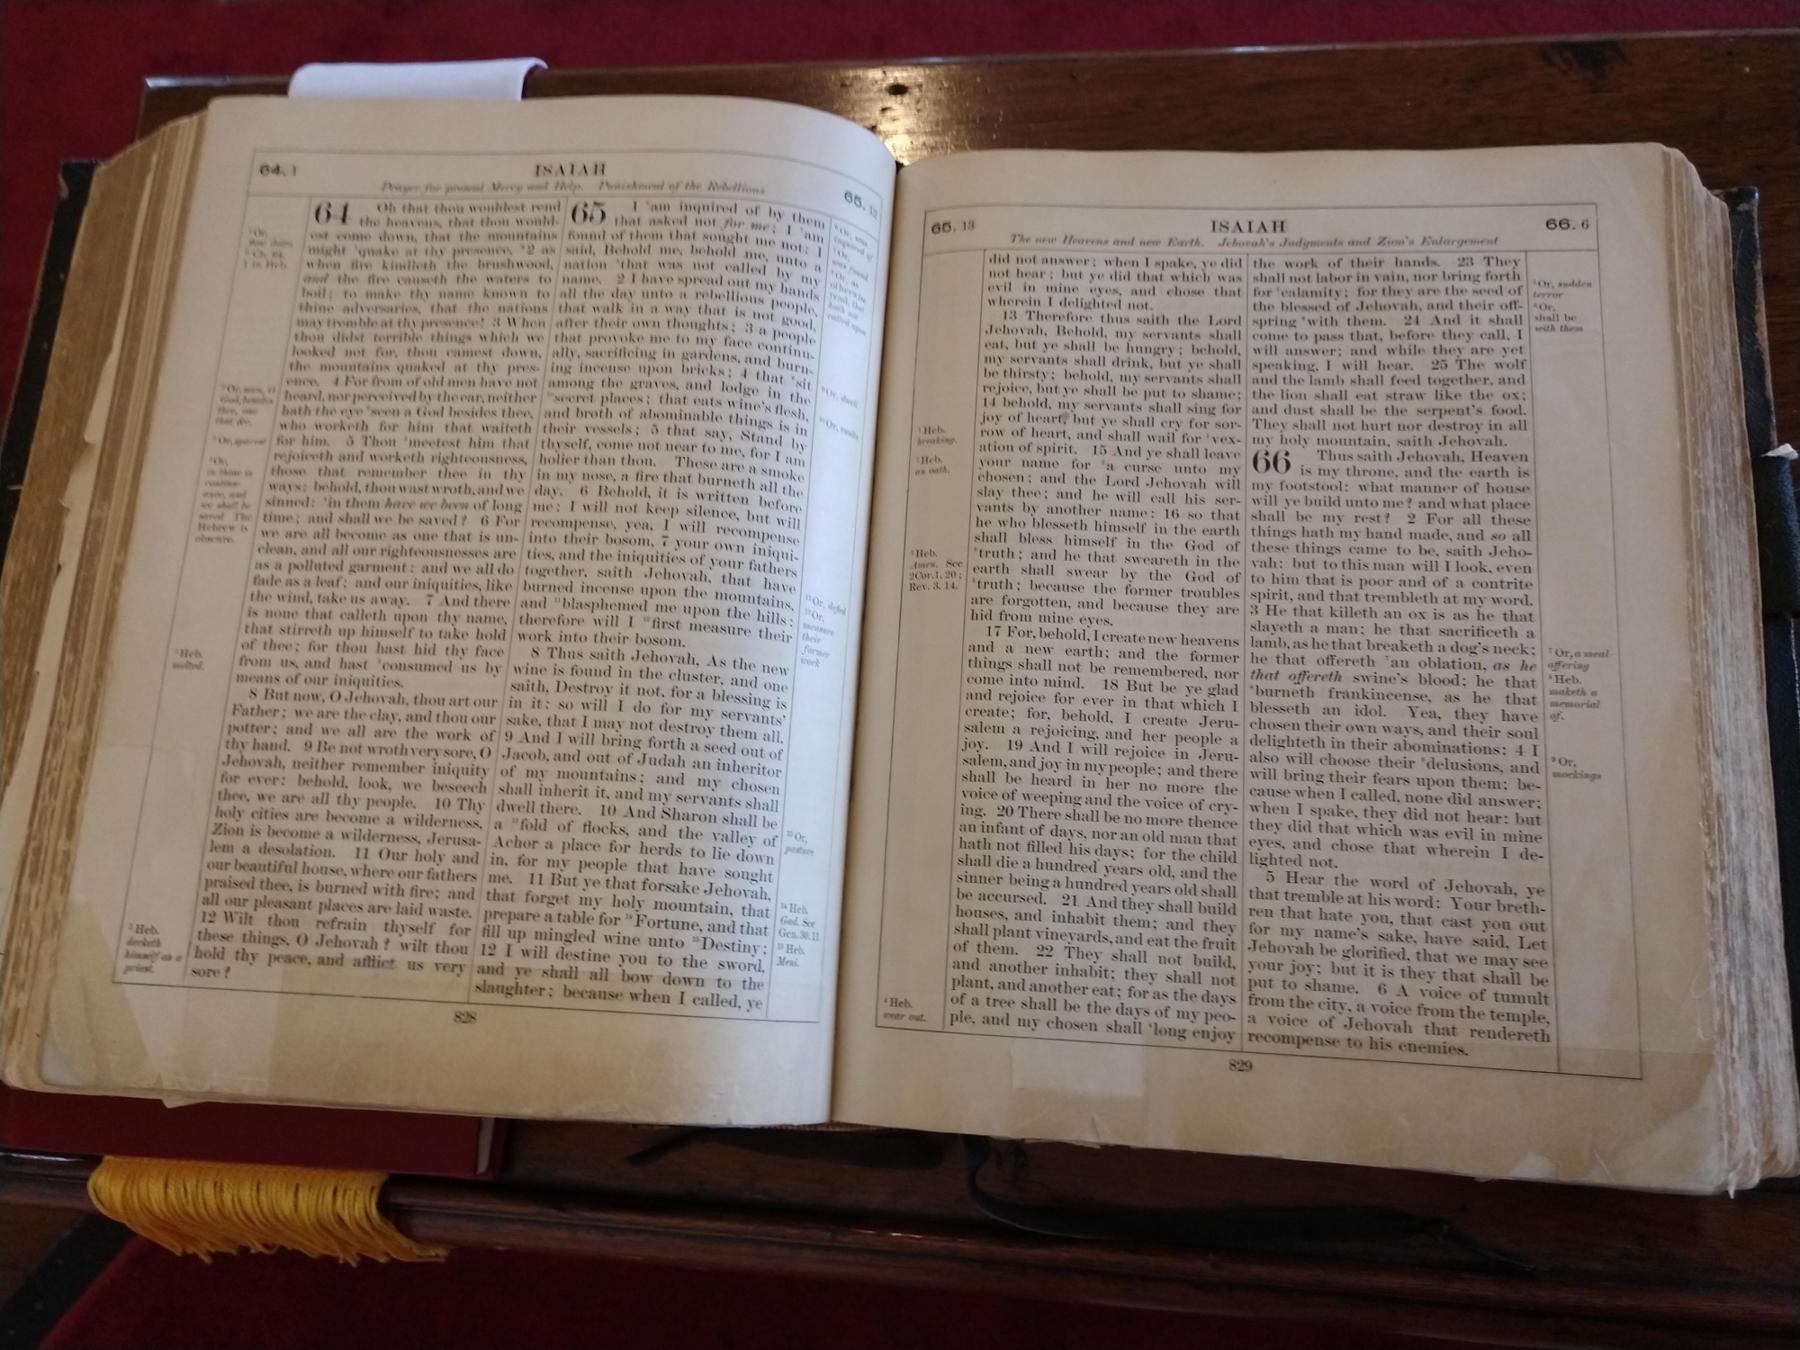 64. 1
ISAIAH
65. 12
Prayer for present Mercy and Help. Punishment of the Rebellious
64 Oh that thou wouldest rend
the heavens, that thou would-
est come down, that the mountains
might quake at thy presence, 2 as
when fire kindleth the brushwood,
and the fire causeth the waters to
boil; to make thy name known to
thine adversaries, that the nations
may tremble at thy presence! 3 When
thou didst terrible things which we
looked not for, thou camest down,
the mountains quaked at thy pres-
ence. 4 For from of old men have not
heard, nor perceived by the ear, neither
hath the eye seen a God besides thee,
who worketh for him that waiteth
for him. 5 Thou meetest him that
rejoiceth and worketh righteousness,
those that remember thee in thy
ways: behold, thou wast wroth, and we
sinned: in them have we been of long
time; and shall we be saved? 6 For
we are all become as one that is un-
clean, and all our righteousnesses are
as a polluted garment: and we all do
fade as a leaf; and our iniquities, like
the wind, take us away. 7 And there
is none that calleth upon thy name,
that stirreth up himself to take hold
of thee; for thou hast hid thy face
from us, and hast consumed us by
means of our iniquities.
8 But now, O Jehovah, thou art our
Father; we are the clay, and thou our
potter; and we all are the work of
thy hand. 9 Be not wroth very sore, O
Jehovah, neither remember iniquity
for ever: behold, look, we beseech
thee, we are all thy people. 10 Thy
holy cities are become a wilderness,
Zion is become a wilderness, Jerusa-
lem a desolation. 11 Our holy and
our beautiful house, where our fathers
praised thee, is burned with fire; and
all our pleasant places are laid waste.
12 Wilt thou refrain thyself for
these things, O Jehovah? wilt thou
hold thy peace, and afflict us very
sore?
Heb.
melted.
65 I am inquired of by them
that asked not for me; I am
found of them that sought me not: I
said, Behold me, behold me, unto a
nation that was not called by my
name. 2 I have spread out my hands
all the day unto a rebellious people,
that walk in a way that is not good,
after their own thoughts; 3 a people
that provoke me to my face continu-
ally, sacrificing in gardens, and burn-
ing incense upon bricks; 4 that sit
among the graves, and lodge in the
secret places; that eats wine's flesh,
and broth of abominable things is in
their vessels; 5 that say, Stand by
thyself, come not near to me, for I am
holier than thou. These are a smoke
in my nose, a fire that burneth all the
day. 6 Behold, it is written before
me: I will not keep silence, but will
recompense, yea, I will recompense
into their bosom, 7 your own iniqui-
ties, and the iniquities of your fathers
together, saith Jehovah, that have
burned incense upon the mountains,
and blasphemed me upon the hills:
therefore will I first measure their
work into their bosom.
8 Thus saith Jehovah, As the new
wine is found in the cluster, and one
saith, Destroy it not, for a blessing is
in it: so will I do for my servants'
sake, that I may not destroy them all.
9 And I will bring forth a seed out of
Jacob, and out of Judah an inheritor
of my mountains; and my chosen
shall inherit it, and my servants shall
dwell there. 10 And Sharon shall be
a fold of flocks, and the valley of
Achor a place for herds to lie down
in, for my people that have sought
me. 11 But ye that forsake Jehovah,
that forget my holy mountain, that
prepare a table for 14Fortune, and that
fill up mingled wine unto 15Destiny;
12 I will destine you to the sword,
and ye shall all bow down to the
slaughter; because when I called, ye
13 Or,
pasture
14 Heb.
Gad. See
Gen. 30. 11
15 Heb.
Meni.
828
65. 13
ISAIAH
66. 6
The new Heavens and new Earth. Jehovah's Judgments and Zion's Enlargement
did not answer; when I spake, ye did
not hear; but ye did that which was
evil in mine eyes, and chose that
wherein I delighted not.
13 Therefore thus saith the Lord
Jehovah, Behold, my servants shall
eat, but ye shall be hungry; behold,
my servants shall drink, but ye shall
be thirsty; behold, my servants shall
rejoice, but ye shall be put to shame;
14 behold, my servants shall sing for
joy of heart, but ye shall cry for sor-
row of heart, and shall wail for 1vex-
ation of spirit. 15 And ye shall leave
your name for 2a curse unto my
chosen; and the Lord Jehovah will
slay thee; and he will call his ser-
vants by another name: 16 so that
he who blesseth himself in the earth
shall bless himself in the God of
3truth; and he that sweareth in the
earth shall swear by the God of
3truth; because the former troubles
are forgotten, and because they are
hid from mine eyes.
17 For, behold, I create new heavens
and a new earth; and the former
things shall not be remembered, nor
come into mind. 18 But be ye glad
and rejoice for ever in that which I
create; for, behold, I create Jeru-
salem a rejoicing, and her people a
joy. 19 And I will rejoice in Jeru-
salem, and joy in my people; and there
shall be heard in her no more the
voice of weeping and the voice of cry-
ing. 20 There shall be no more thence
an infant of days, nor an old man that
hath not filled his days; for the child
shall die a hundred years old, and the
sinner being a hundred years old shall
be accursed. 21 And they shall build
houses, and inhabit them; and they
shall plant vineyards, and eat the fruit
of them. 22 They shall not build,
and another inhabit; they shall not
plant, and another eat; for as the days
of a tree shall be the days of my peo-
ple, and my chosen shall 4long enjoy
1 Heb.
breaking.
2 Heb.
an oath.
3 Heb.
Amen. See
2 Cor. 1. 20;
Rev. 3. 14.
4 Heb.
wear out.
the work of their hands. 23 They
shall not labor in vain, nor bring forth
for 5calamity; for they are the seed of
the blessed of Jehovah, and their off-
spring 6with them. 24 And it shall
come to pass that, before they call, I
will answer; and while they are yet
speaking, I will hear. 25 The wolf
and the lamb shall feed together, and
the lion shall eat straw like the ox;
and dust shall be the serpent's food.
They shall not hurt nor destroy in all
my holy mountain, saith Jehovah.
66 Thus saith Jehovah, Heaven
is my throne, and the earth is
my footstool: what manner of house
will ye build unto me? and what place
shall be my rest? 2 For all these
things hath my hand made, and so all
these things came to be, saith Jeho-
vah: but to this man will I look, even
to him that is poor and of a contrite
spirit, and that trembleth at my word.
3 He that killeth an ox is as he that
slayeth a man; he that sacrificeth a
lamb, as he that breaketh a dog's neck;
he that offereth 7an oblation, as he
that offereth swine's blood; he that
8burneth frankincense, as he that
blesseth an idol. Yea, they have
chosen their own ways, and their soul
delighteth in their abominations: 4 I
also will choose their 9delusions, and
will bring their fears upon them; be-
cause when I called, none did answer;
when I spake, they did not hear: but
they did that which was evil in mine
eyes, and chose that wherein I de-
lighted not.
5 Hear the word of Jehovah, ye
that tremble at his word: Your breth-
ren that hate you, that cast you out
for my name's sake, have said, Let
Jehovah be glorified, that we may see
your joy; but it is they that shall be
put to shame. 6 A voice of tumult
from the city, a voice from the temple,
a voice of Jehovah that rendereth
recompense to his enemies.
5 Or, sudden
terror
6 Or,
shall be
with them
7 Or, a meal-
offering
8 Heb.
maketh a
memorial
of.
9 Or,
mockings
829